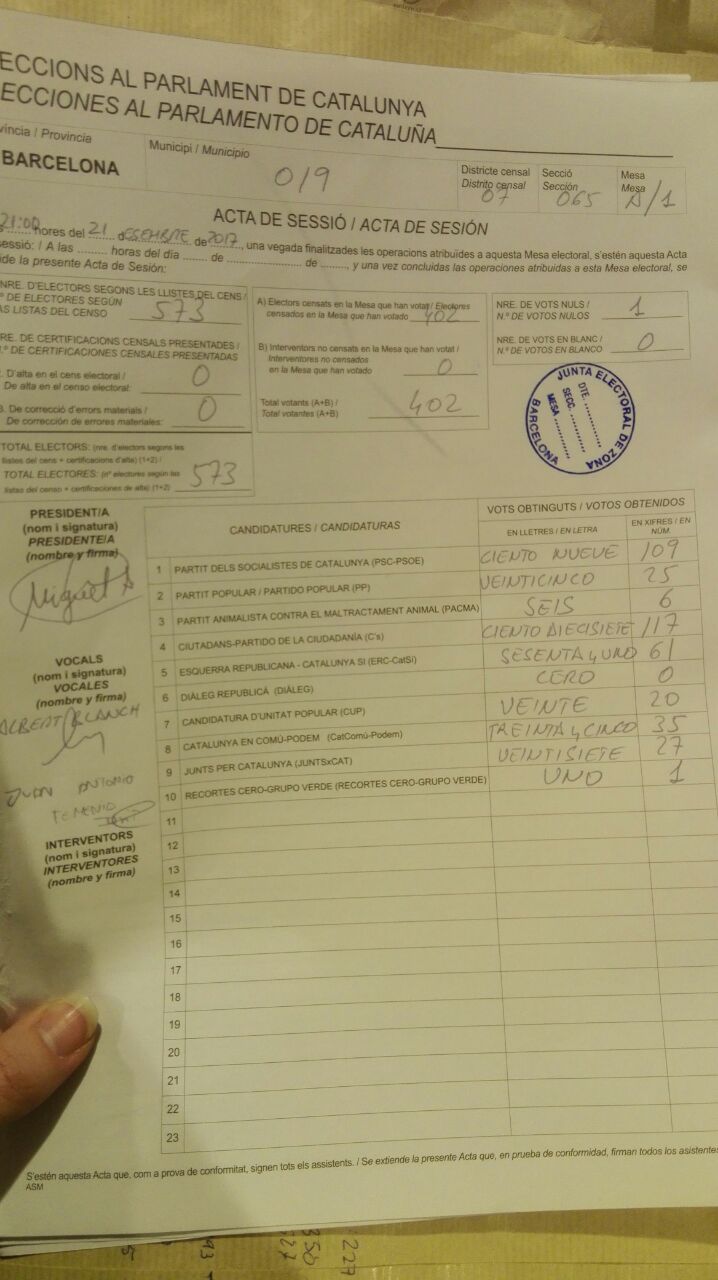 ECCIONS AL PARLAMENT DE CATALUNYA
ECCIONES AL PARLAMENTO DE CATALUÑA
víncia / Provincia
BARCELONA
Municipi / Municipio
019
Districte censal
Distrito censal
07
Secció
Sección
065
Mesa
Mesa
A/1
ACTA DE SESSIÓ / ACTA DE SESIÓN
21:00 hores del 21 dESEMBRE de 2017, una vegada finalitzades les operacions atribuïdes a aquesta Mesa electoral, s'estén aquesta Acta
sessió: / A las ......... horas del día ....... de ...................... de ........, y una vez concluidas las operaciones atribuidas a esta Mesa electoral, se
ide la presente Acta de Sesión:
NRE. D'ELECTORS SEGONS LES LLISTES DEL CENS /
º DE ELECTORES SEGÚN
AS LISTAS DEL CENSO
573
NRE. DE CERTIFICACIONS CENSALS PRESENTADES /
.º DE CERTIFICACIONES CENSALES PRESENTADAS
. D'alta en el cens electoral /
De alta en el censo electoral:
0
B. De correcció d'errors materials /
De corrección de errores materiales:
0
TOTAL ELECTORS: (nre. d'electors segons les
llistes del cens + certificacions d'alta) (1+2) /
TOTAL ELECTORES: (nº electores según las
listas del censo + certificaciones de alta) (1+2)
573
A) Electors censats en la Mesa que han votat / Electores
censados en la Mesa que han votado
402
B) Interventors no censats en la Mesa que han votat /
Interventores no censados
en la Mesa que han votado
0
Total votants (A+B) /
Total votantes (A+B)
402
NRE. DE VOTS NULS /
N.º DE VOTOS NULOS
1
NRE. DE VOTS EN BLANC /
N.º DE VOTOS EN BLANCO
0
JUNTA ELECTORAL DE ZONA
BARCELONA
DTE. ............
SECC. ............
MESA ............
PRESIDENT/A
(nom i signatura)
PRESIDENTE/A
(nombre y firma)
Miguel A
VOCALS
(nom i signatura)
VOCALES
(nombre y firma)
ALBERT BLANCH
JUAN ANTONIO
INTERVENTORS
(nom i signatura)
INTERVENTORES
(nombre y firma)
CANDIDATURES / CANDIDATURAS
VOTS OBTINGUTS / VOTOS OBTENIDOS
EN LLETRES / EN LETRA
EN XIFRES / EN
NÚM.
1 PARTIT DELS SOCIALISTES DE CATALUNYA (PSC-PSOE) CIENTO NUEVE 109
2 PARTIT POPULAR / PARTIDO POPULAR (PP) VEINTICINCO 25
3 PARTIT ANIMALISTA CONTRA EL MALTRACTAMENT ANIMAL (PACMA) SEIS 6
4 CIUTADANS-PARTIDO DE LA CIUDADANÍA (C's) CIENTO DIECISIETE 117
5 ESQUERRA REPUBLICANA - CATALUNYA SI (ERC-CatSí) SESENTA y UNO 61
6 DIÀLEG REPUBLICÀ (DIÀLEG) CERO 0
7 CANDIDATURA D'UNITAT POPULAR (CUP) VEINTE 20
8 CATALUNYA EN COMÚ-PODEM (CatComú-Podem) TREINTA y CINCO 35
9 JUNTS PER CATALUNYA (JUNTSxCAT) VEINTISIETE 27
10 RECORTES CERO-GRUPO VERDE (RECORTES CERO-GRUPO VERDE) UNO 1
11
12
13
14
15
16
17
18
19
20
21
22
23
S'estén aquesta Acta que, com a prova de conformitat, signen tots els assistents. / Se extiende la presente Acta que, en prueba de conformidad, firman todos los asistentes
ASM
227
350